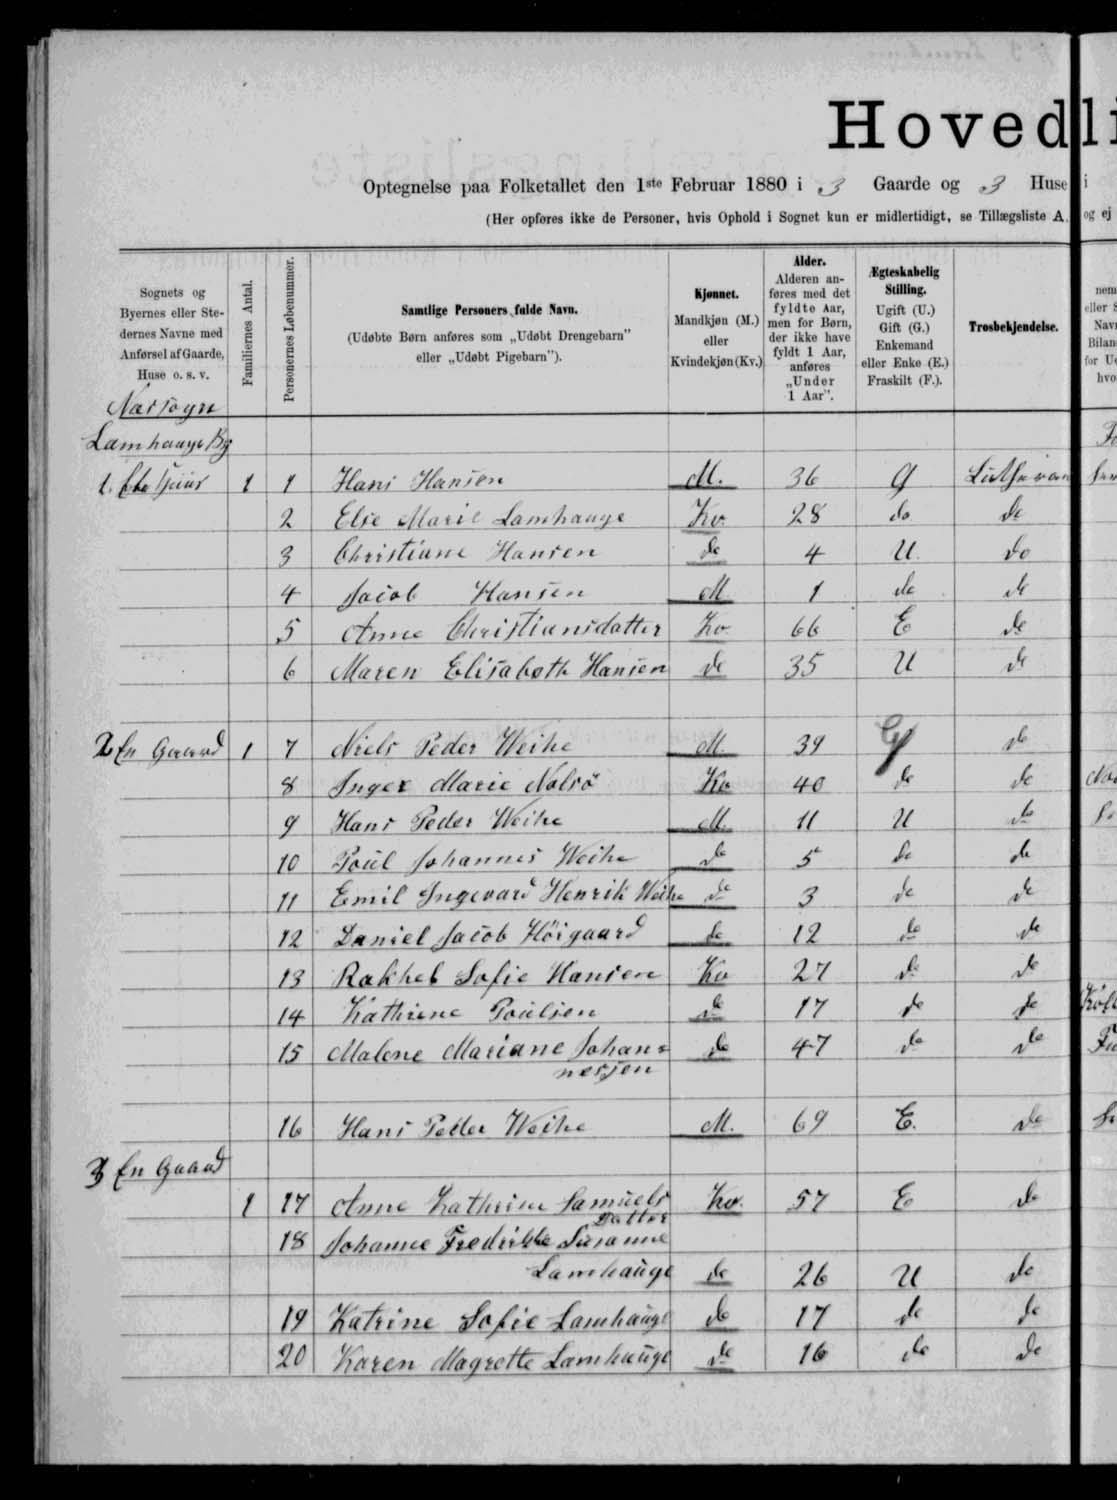 Hovedli
Optegnelse paa Folketallet den 1ste Februar 1880 i 3 Gaarde og 3 Huse i
(Her opføres ikke de Personer, hvis Ophold i Sognet kun er midlertidigt, se Tillægsliste A. og ej
Sognets og Byernes eller Stedernes Navne med Anførsel af Gaarde, Huse o. s. v.
Familiernes Antal.
Personernes Løbenummer.
Samtlige Personers fulde Navn.
(Udøbte Børn anføres som „Udøbt Drengebarn" eller „Udøbt Pigebarn").
Kjønnet.
Mandkjøn (M.) eller Kvindekjøn (Kv.)
Alder.
Alderen anføres med det fyldte Aar, men for Børn, der ikke have fyldt 1 Aar, anføres „Under 1 Aar".
Ægteskabelig Stilling.
Ugift (U.) Gift (G.) Enkemand eller Enke (E.) Fraskilt (F.).
Trosbekjendelse.
Næs sogn
Lamhauge By
1. Et Huus 1 1 Hans Hansen M. 36 G Lutheran
2 Else Marie Lamhauge Kv. 28 do do
3 Christiane Hansen do 4 U. do
4 Jacob Hansen M 1 do do
5 Anne Christiansdatter Kv. 66 E do
6 Maren Elisabeth Hansen do 35 U do
2 En Gaard 1 7 Niels Peder Weihe M. 39 G do
8 Inger Marie Nolsö Kv 40 do do
9 Hans Peder Weihe M. 11 U do
10 Poul Johannes Weihe do 5 do do
11 Emil Ingevard Henrik Weihe do 3 do do
12 Daniel Jacob Höigaard do 12 do do
13 Rakhel Sofie Hansen Kv 27 do do
14 Kathrine Poulsen do 17 do do
15 Malene Mariane Johan=
nessen do 47 do do
16 Hans Peder Weihe M. 69 E. do
3 En Gaard
1 17 Anne Kathrine Samuels
Datter Kv. 57 E do
18 Johanne Fredrikke Susanne
Lamhauge do 26 U do
19 Katrine Sofie Lamhauge do 17 do do
20 Karen Magrette Lamhauge do 16 do do